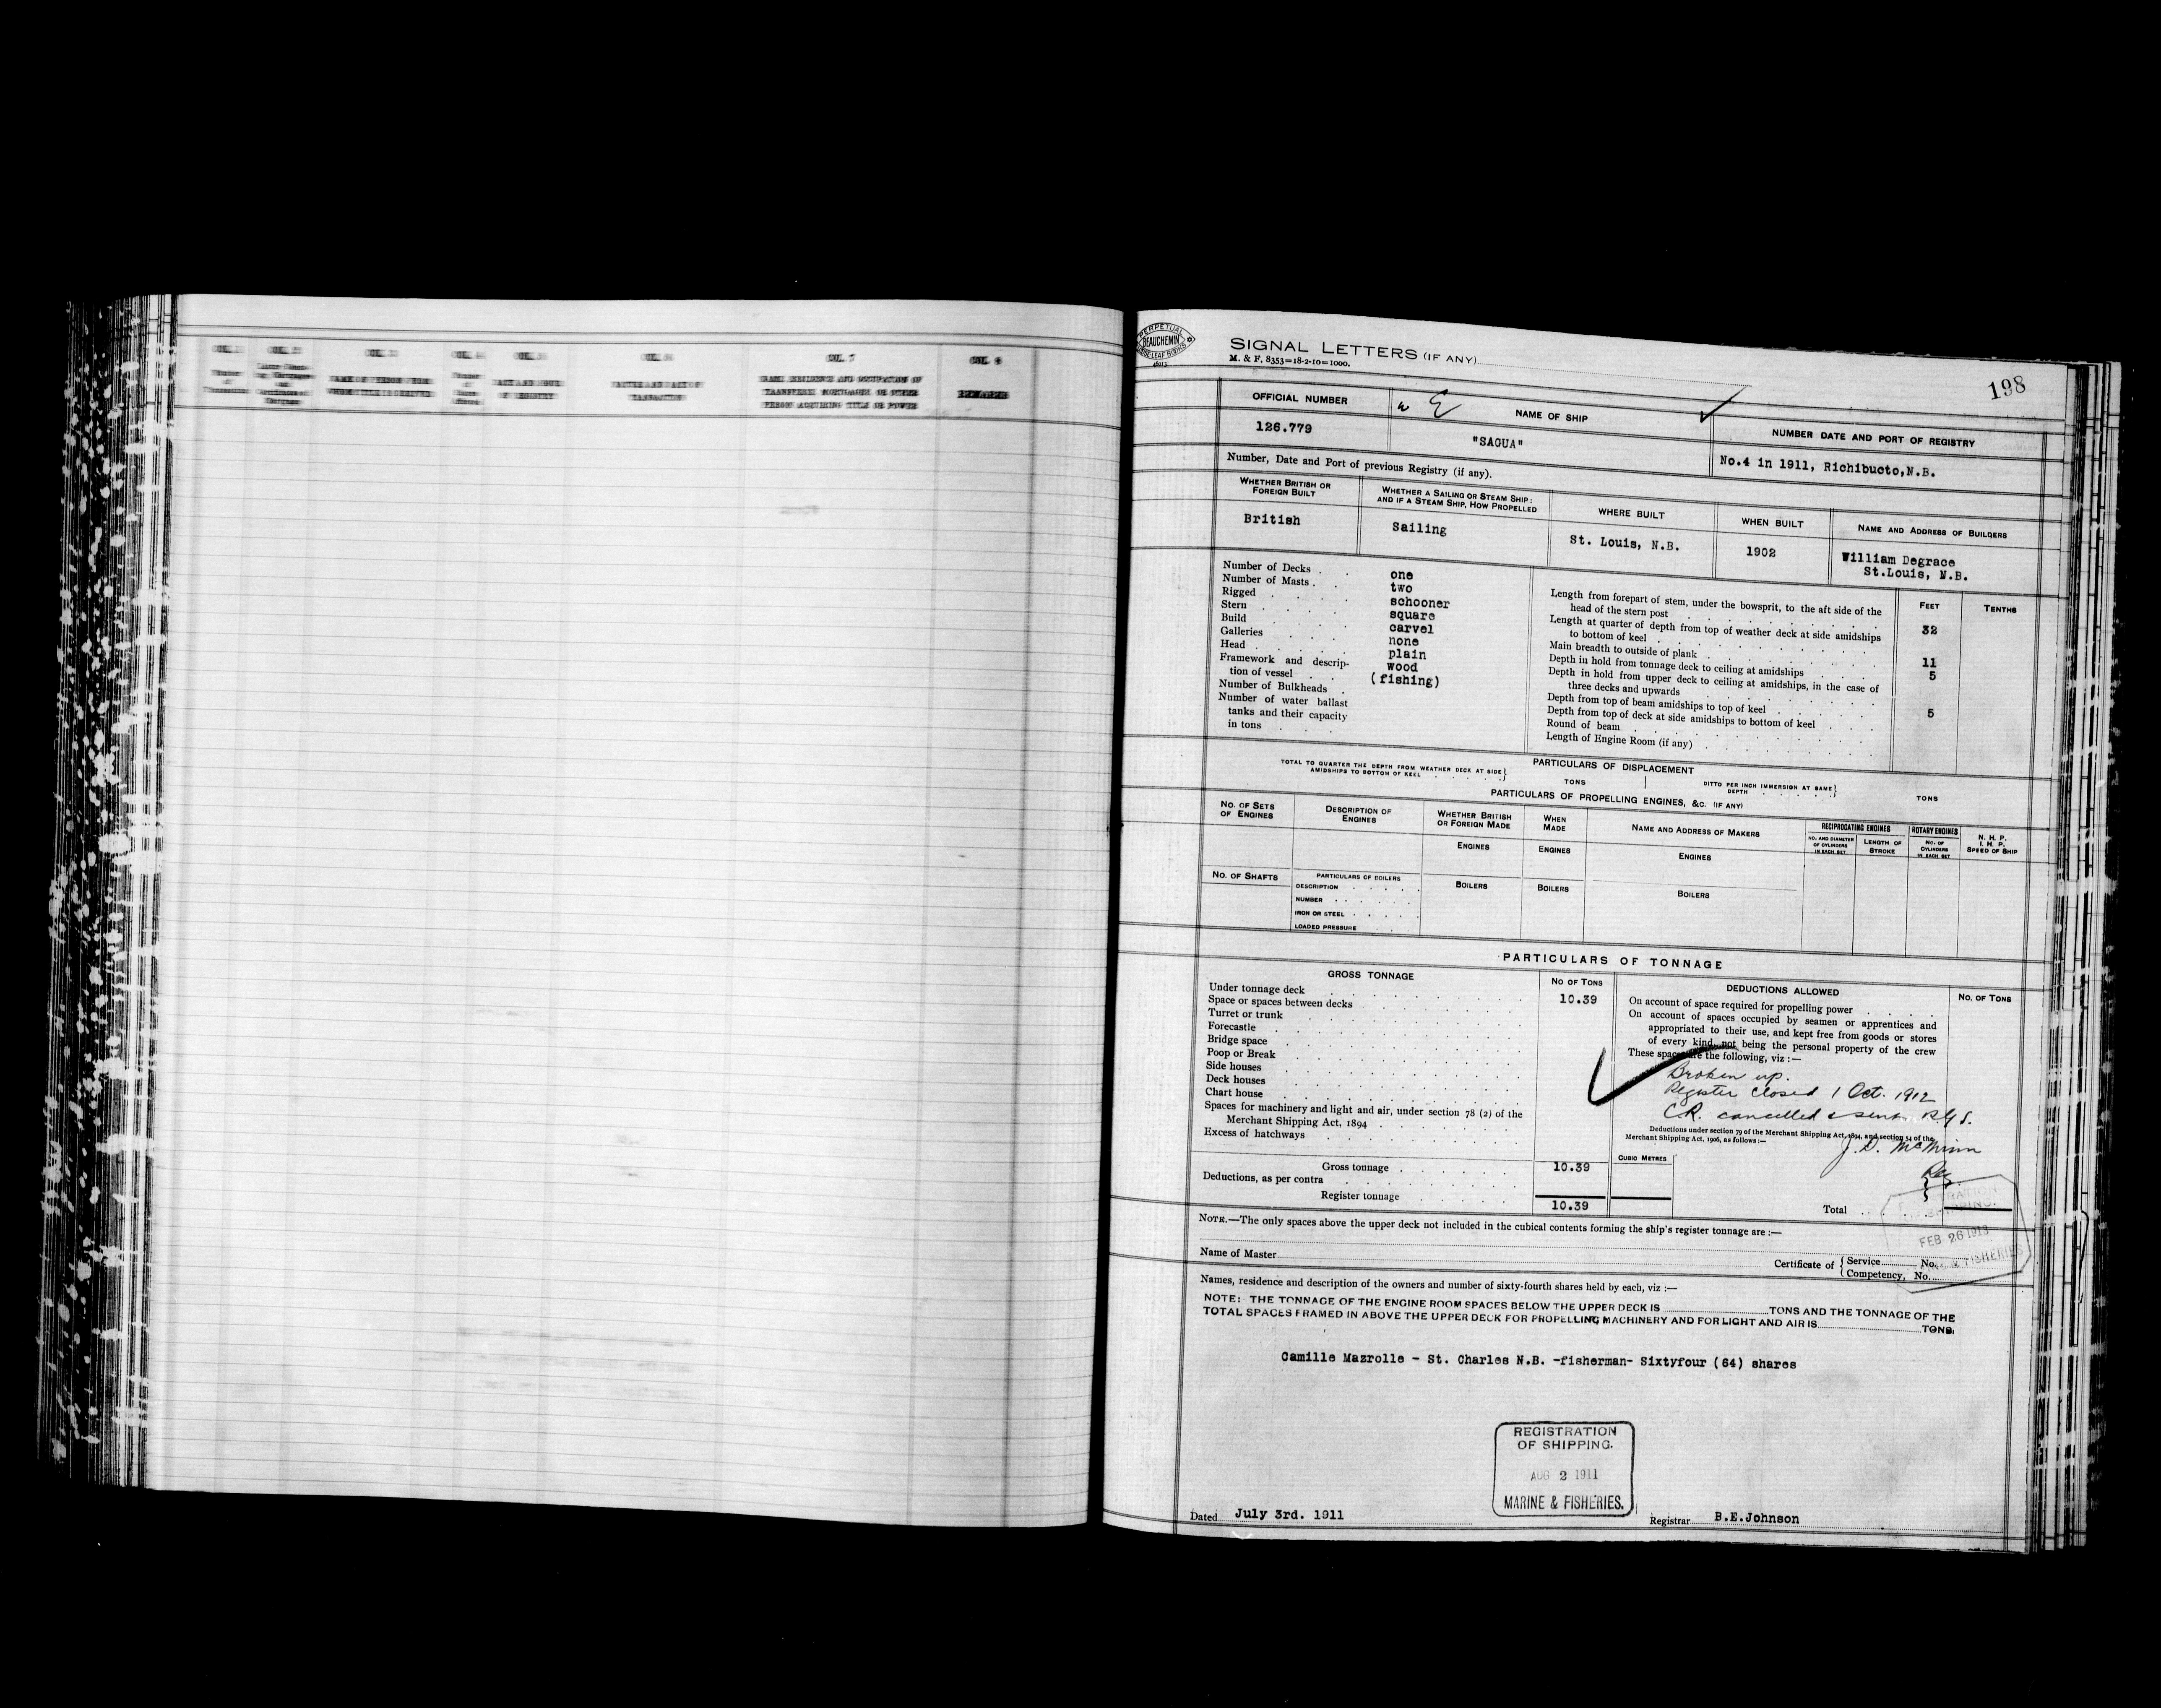 COL. 7
COL. 8
REMARKS
PERPETUAL
BEAUCHEMIN
LOOSE LEAF BOOKS
SIGNAL LETTERS (IF ANY)
M. & F. 8353=18-2-10=1000.
198
OFFICIAL NUMBER
NAME OF SHIP
NUMBER DATE AND PORT OF REGISTRY
126.779
"SAGUA"
No.4 in 1911, Richibucto,N.B.
Number, Date and Port of previous Registry (if any).
WHETHER BRITISH OR FOREIGN BUILT
WHETHER A SAILING OR STEAM SHIP: AND IF A STEAM SHIP, HOW PROPELLED
WHERE BUILT
WHEN BUILT
NAME AND ADDRESS OF BUILDERS
British
Sailing
St. Louis, N.B.
1902
William Degrace
St.Louis, N.B.
Number of Decks . . one
Number of Masts . . two
Rigged . . . . schooner
Stern . . . . square
Build . . . . carvel
Galleries . . . none
Head . . . . . plain
Framework and descrip- wood
tion of vessel . . (fishing)
Number of Bulkheads .
Number of water ballast
tanks and their capacity
in tons . . .
FEET
TENTHS
Length from forepart of stem, under the bowsprit, to the aft side of the
head of the stern post 32
Length at quarter of depth from top of weather deck at side amidships
to bottom of keel
Main breadth to outside of plank 11
Depth in hold from tonnage deck to ceiling at amidships 5
Depth in hold from upper deck to ceiling at amidships, in the case of
three decks and upwards
Depth from top of beam amidships to top of keel 5
Depth from top of deck at side amidships to bottom of keel
Round of beam
Length of Engine Room (if any)
PARTICULARS OF DISPLACEMENT
TOTAL TO QUARTER THE DEPTH FROM WEATHER DECK AT SIDE
AMIDSHIPS TO BOTTOM OF KEEL
TONS
DITTO PER INCH IMMERSION AT SAME
DEPTH
TONS
PARTICULARS OF PROPELLING ENGINES, &C. (IF ANY)
NO. OF SETS OF ENGINES
DESCRIPTION OF ENGINES
WHETHER BRITISH OR FOREIGN MADE
WHEN MADE
NAME AND ADDRESS OF MAKERS
RECIPROCATING ENGINES
NO. AND DIAMETER OF CYLINDERS IN EACH SET
LENGTH OF STROKE
ROTARY ENGINES
NO. OF CYLINDERS IN EACH SET
N. H. P.
I. H. P.
SPEED OF SHIP
ENGINES
ENGINES
ENGINES
NO. OF SHAFTS
PARTICULARS OF BOILERS
DESCRIPTION
NUMBER
IRON OR STEEL
LOADED PRESSURE
BOILERS
BOILERS
BOILERS
PARTICULARS OF TONNAGE
GROSS TONNAGE
NO OF TONS
Under tonnage deck 10.39
Space or spaces between decks
Turret or trunk
Forecastle
Bridge space
Poop or Break
Side houses
Deck houses
Chart house
Spaces for machinery and light and air, under section 78 (2) of the
Merchant Shipping Act, 1894
Excess of hatchways
Gross tonnage 10.39
Deductions, as per contra
Register tonnage 10.39
DEDUCTIONS ALLOWED
NO. OF TONS
On account of space required for propelling power
On account of spaces occupied by seamen or apprentices and
appropriated to their use, and kept free from goods or stores
of every kind, not being the personal property of the crew
These spaces are the following, viz :—
Broken up.
Register closed 1 Oct. 1912
C.R. cancelled & sent R.G.S.
Deductions under section 79 of the Merchant Shipping Act, 1894, and section 54 of the
Merchant Shipping Act, 1906, as follows :—
J.D. McMinn
Reg.
CUBIC METRES
Total
FEB 26 1913
& FISHERIES
NOTE.—The only spaces above the upper deck not included in the cubical contents forming the ship's register tonnage are :—
Name of Master
Certificate of
Service No.
Competency, No.
Names, residence and description of the owners and number of sixty-fourth shares held by each, viz :—
NOTE: THE TONNAGE OF THE ENGINE ROOM SPACES BELOW THE UPPER DECK IS TONS AND THE TONNAGE OF THE
TOTAL SPACES FRAMED IN ABOVE THE UPPER DECK FOR PROPELLING MACHINERY AND FOR LIGHT AND AIR IS TONS.
Camille Mazrolle - St. Charles N.B. -fisherman- Sixtyfour (64) shares
REGISTRATION
OF SHIPPING.
AUG 2 1911
MARINE & FISHERIES.
Dated July 3rd. 1911
Registrar B.E.Johnson